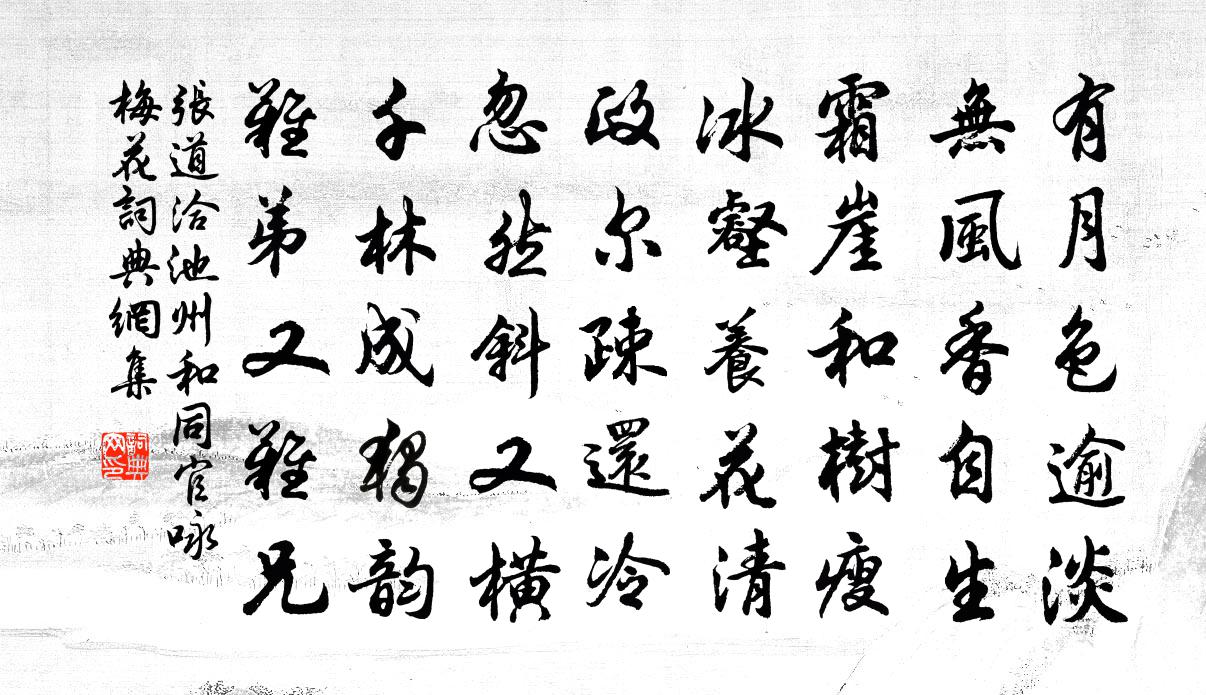 有月色逾淡
無風香自生
霜崖和樹瘦
冰壑養花清
政尔疎還冷
忽然斜又橫
千林成獨韵
難弟又難兄
張道洽池州和同官咏
梅花詞典網集
詞典网印